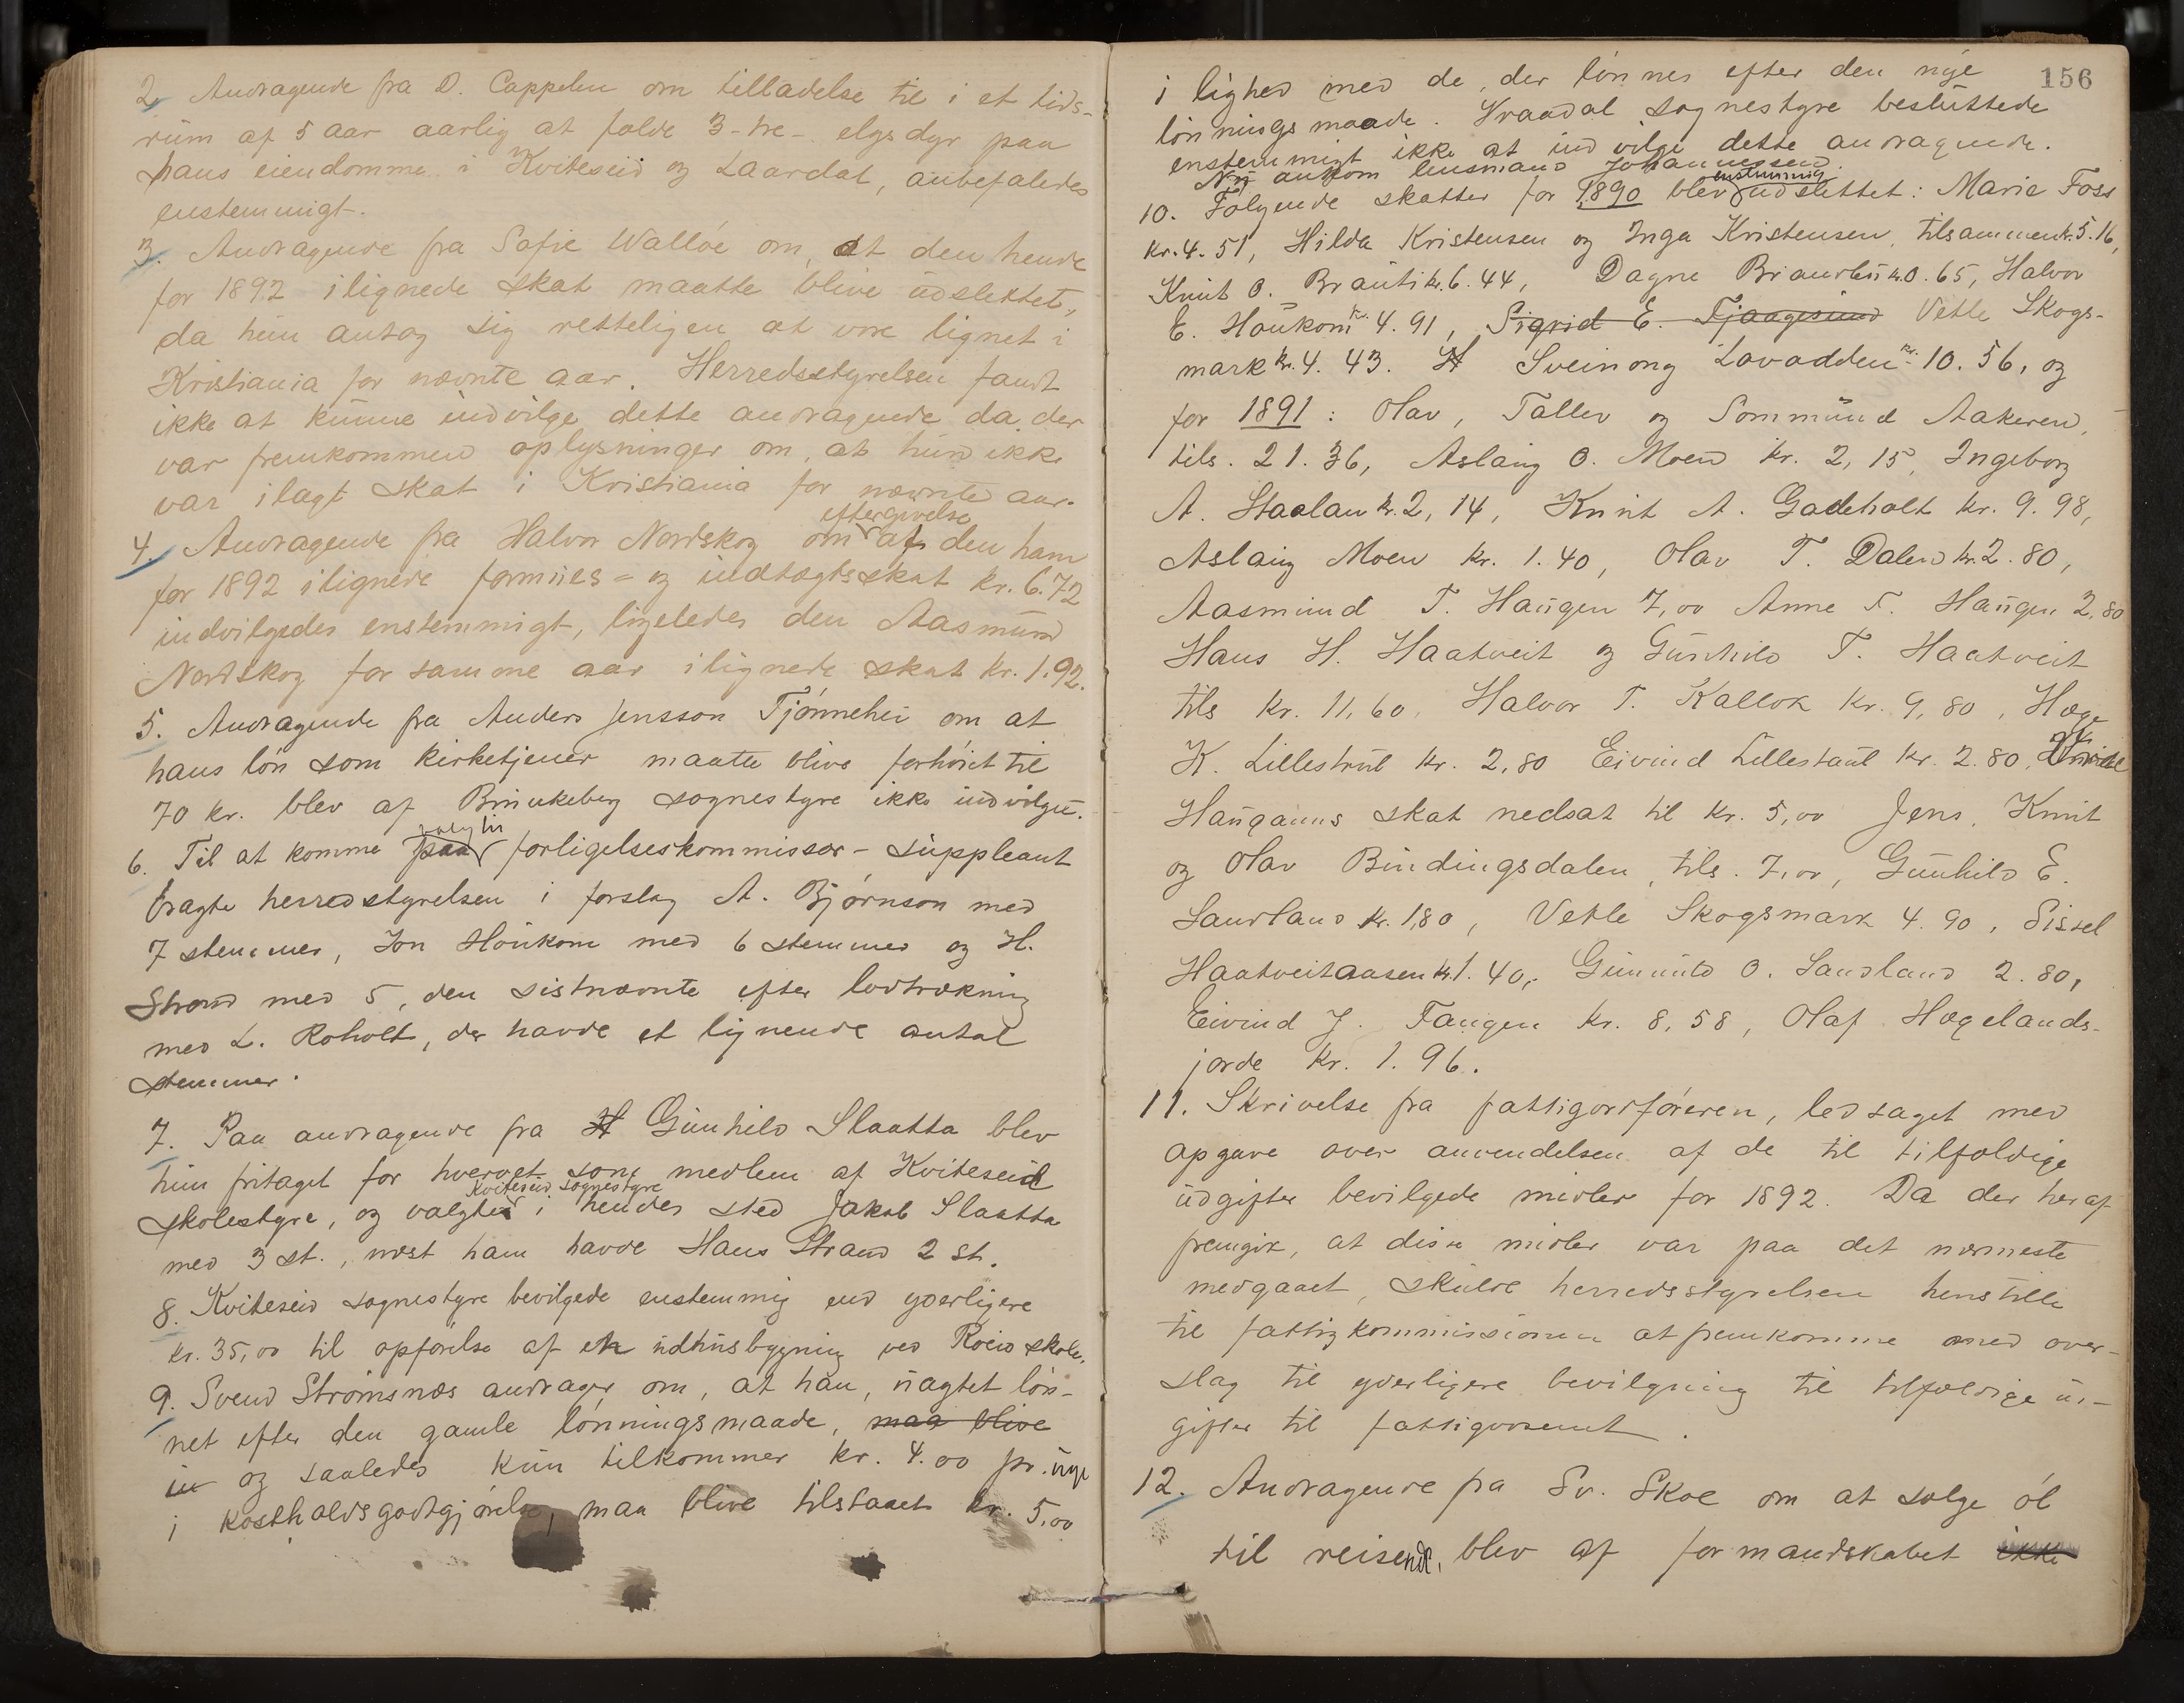 2. Andragende fra D. Cappelen om tilladelse til i et tids-
rum af 5 aar aarlig at fælde 3-tre- elgsdyr paa
hans eiendomme i Kviteseid og Laardal, anbefaledes
enstemmigt.
3. Andragende fra Sofie Walløe om, at den hende
for 1892 ilignede skat maatte blive udslettet,
da hun antog sig retteligen at være lignet i
Kristiania for nævnte aar. Herredsstyrelsen fandt
ikke at kunne indvilge dette andragende da der
var fremkommen oplysninger om, at hun ikke
var ilagt skat i Kristiania for nævnte aar.
eftergivelse
4. Andragende fra Halvor Nordskog om af den ham
for 1892 ilignede formues- og indtægtsskat kr. 6.72
indvilgedes enstemmigt, ligeledes den Aasmund
Nordskog for samme aar ilignede skat kr. 1.92.
5. Andragende fra Anders Jensson Tjønnehei om at
hans løn som kirketjener maatte blive forhøiet til
70 kr. blev af Brunkeberg sognestyre ikke indvilget.
valg til
6. Til at komme paa forligelseskommissær-suppleant
bragte herredstyrelsen i forslag A. Bjørnson med
7 stemmer, Jon Høukom med 6 stemmer og H.
Strand med 5, den sistnævnte efter lodtrækning
med L. Roholt, der havde et lignende antal
stemmer.
7. Paa andragende fra H Gunhild Slaatta blev
hun fritaget for hvervet som medlem af Kviteseid
Kviteseid sognestyre
skolestyre, og valgtes i hendes sted Jakob Slaatta
med 3 st., næst ham havde Hans Strand 2 st.
8. Kviteseid sognestyre bevilgede enstemmig end yderligere
kr. 35,00 til opførelse af en udhusbygning ved Roeid skole.
9. Svend Strømsnæs andrager om, at han, uagtet løn-
net efter den gamle lønningsmaade, maa blive
in og saaledes kun tilkommer kr. 4.00 pr. uge
i kostholdsgodtgjørelse, maa blive tilstaaet kr. 5,00
156
i lighed med de, der lønnes efter den nye
lønningsmaade. Vraadal sognestyre besluttede
enstemmigt ikke at indvilge dette andragende.
Nu ankom lensmand Johannessen.
enstemmig
10. Følgende skatter for 1890 blev udslettet: Marie Foss
kr. 4.51, Hilda Kristensen og Inga Kristensen, tilsammen kr. 5.16,
Knut O. Brauti kr. 6.44, Dagne Briaurlu kr. 0.65, Halvor
E. Høukom kr. 4.91, Sigrid E. Fjaagesund Vetle Skogs-
mark kr. 4.43. H Sveinong Lovadden kr. 10.56, og
for 1891: Olav, Tallev og Sommund Aakeren,
tils. 21.36, Aslaug O. Moen kr. 2,15, Ingeborg
A. Staalan kr. 2,14, Knut A. Gadeholt kr. 9.98,
Aslaug Moen kr. 1.40, Olav T. Dalen kr. 2.80,
Aasmund T. Haugen 7,00 Anne T. Haugen 2,80
Hans H. Haatveit og Gunhild T. Haatveit
tils kr. 11,60, Halvor T. Kallok kr. 9,80, Hæge
K. Lillestaul kr. 2,80 Eivind Lillestaul kr. 2.80,
Hauganns skat nedsat til kr. 5,00 Jens, Knut
og Olav Bindingsdalen, tils. 7,00, Gunhild E.
Saurland kr. 1,80, Vetle Skogsmark 4.90, Sissel
Haatveitaasen kr. 1.40, Gunnuld O. Sandland 2.80,
Eivind J. Tangen kr. 8,58, Olaf Hægelands-
jorde kr. 1.96.
11. Skrivelse fra fattigordføreren, ledsaget med
opgave over anvendelsen af de til tilfældige
udgifter bevilgede midler for 1892. Da der heraf
fremgik, at disse midler var paa det nærmeste
medgaaet, skulde herredsstyrelsen henstille
til fattigkommissionen at fremkomme med over-
slag til yderligere bevilgning til tilfældige ud-
gifter til fattigvæsenet.
12. Andragende fra Sv. Skoe om at sælge øl
til reisende, blev af formandskabet ikke